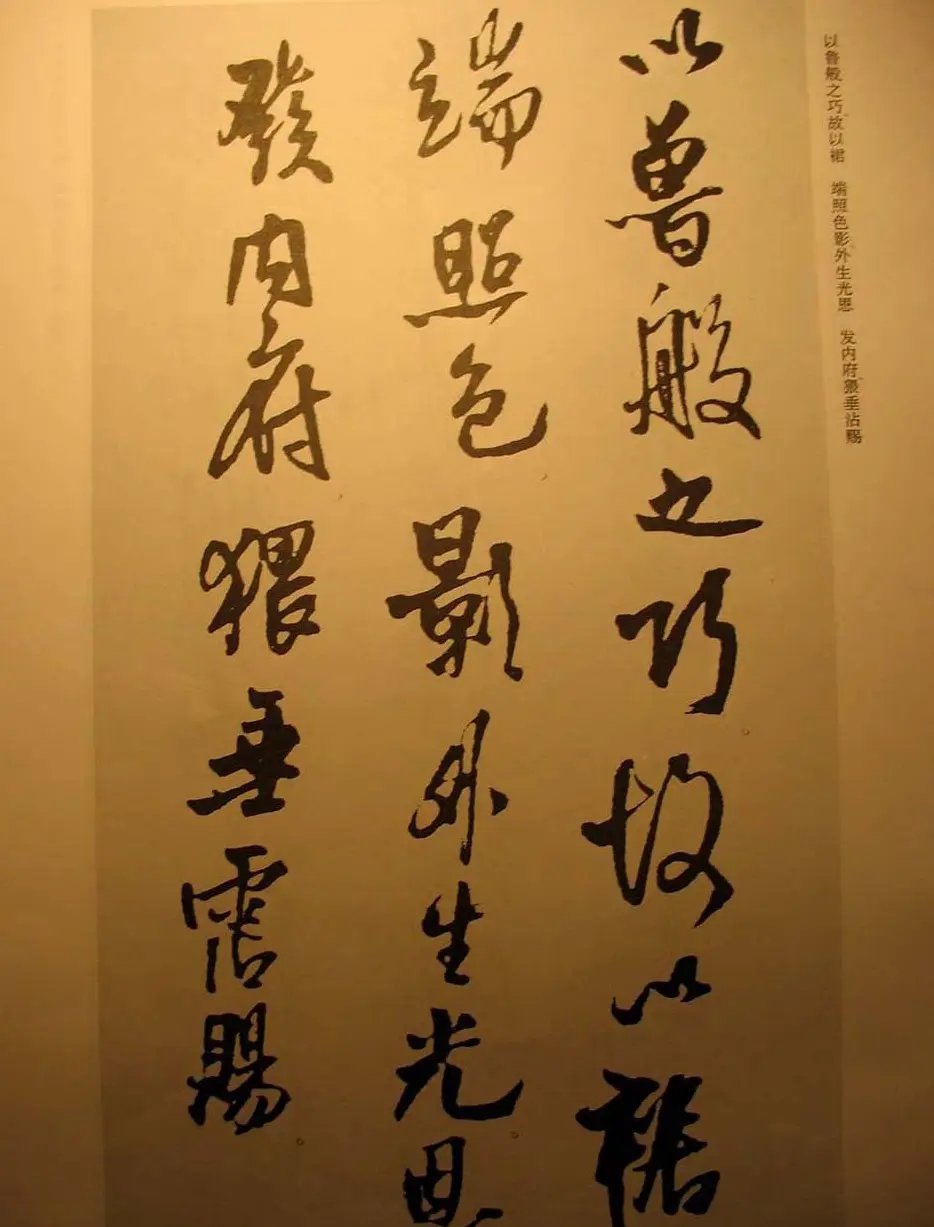 以鲁般之巧。故以裾　端照色影。外生光恩　发内府。猥垂沾赐
以魯般之巧故以裾
端照色影外生光恩
發内府猥垂霑賜